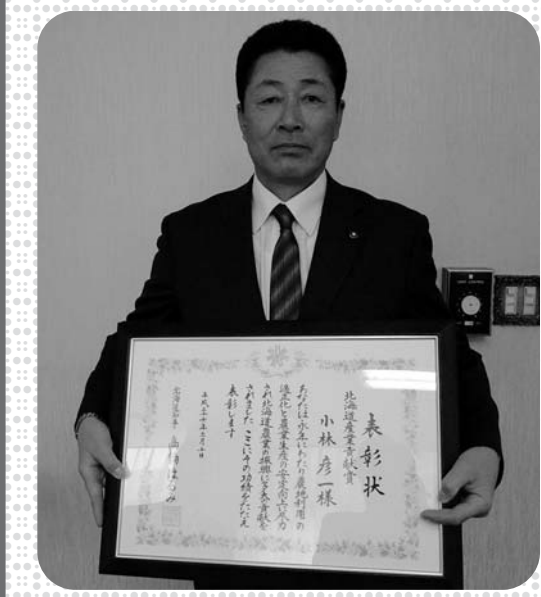 表彰状
北海道産業貢献賞
小林彦一様
あなたは永年にわたり農地利用の
適正化と農業生産の安定向上に尽力
され北海道農業の振興に多大の貢献を
されました ここにその功績をたたえ
表彰します
平成三十年三月
北海道知事 高橋はるみ